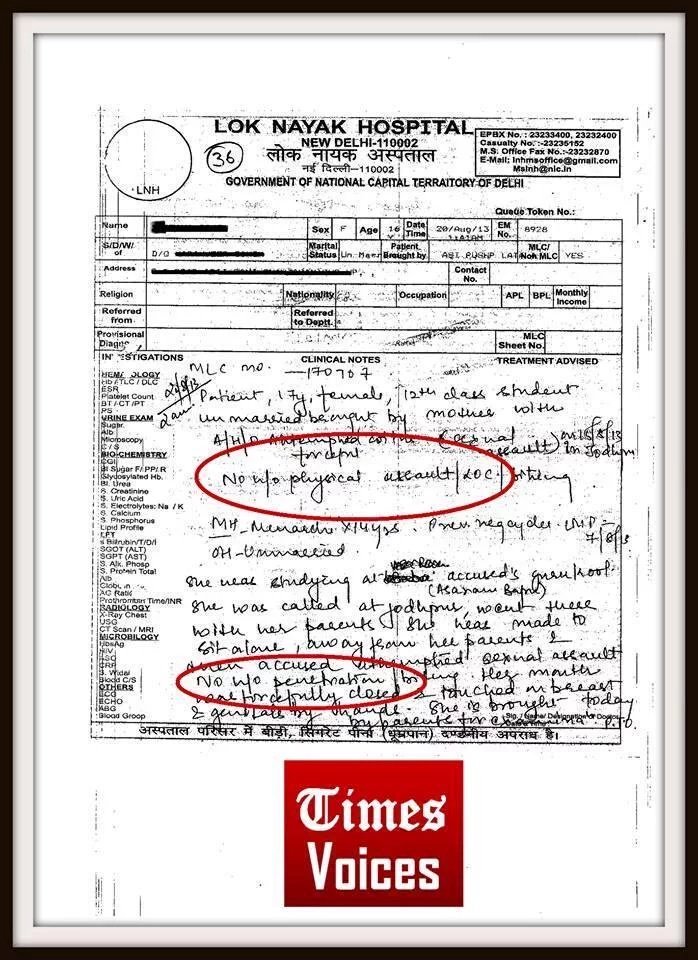 LOK NAYAK HOSPITAL
NEW DELHI-110002
लोक नायक अस्पताल
नई दिल्ली-110002
GOVERNMENT OF NATIONAL CAPITAL TERRAITORY OF DELHI
36
LNH
EPBX No. : 23233400, 23232400
Casualty No. :-23235152
M.S. Office Fax No.:-23232870
E-Mail: lnhmsoffice@gmail.com
Mslnh@nic.in
Queue Token No.:
Name Sex F Age 16 Y Date Time 20/Aug/13 EM No. 8928
S/D/W/ of D/O Marital Status Patient Brought by ASI PUSHP LATA MLC/ Non MLC YES
Address Contact No.
Religion Nationality Occupation APL BPL Monthly Income
Referred from Referred to Deptt.
Provisional Diagn MLC Sheet No.
INVESTIGATIONS CLINICAL NOTES TREATMENT ADVISED
MLC no. — 170707
HEMATOLOGY
Hb / TLC / DLC
ESR
Platelet Count
BT / CT / PT
PS
URINE EXAM
Sugar
Alb
Microscopy
C / S
BIO-CHEMISTRY
Bl Sugar F/ PP/ R
Glycosylated Hb.
Bl. Urea
S. Creatinine
S. Uric Acid
S. Electrolytes: Na / K
S. Calcium
S. Phosphorus
Lipid Profile
LFT
s Bilirubin/T/D/I
SGOT (ALT)
SGPT (AST)
S. Alk. Phosp
S. Protein Total
Alb
AG Ratio
Prothrombin Time/INR
RADIOLOGY
X-Ray Chest
USG
CT Scan / MRI
MICROBIOLOGY
HbsAg
HIV
CRP
S. Widal
Blood C/S
OTHERS
ECG
ECHO
ABG
Blood Group
Patient, 17y, female, 12th class student
unmarried brought by mother with
A/H/O attempted sexual assault on 15/8/13 in Jodhpur
forceful
No h/o physical assault / LOC / biting
MH - Menarche x 14 yrs. LMP - 7/8/13
OH - Unmarried.
She was studying at accused's gurukool
(Asaram Bapu)
She was called at Jodhpur, went there
with her parents. She was made to
sit alone, away from her parents &
then accused attempted sexual assault
No h/o penetration / biting Her mouth
was forcefully closed & touched on breast
& genitals by hands. She is brought today
by parents for P.T.O
Sig. / Name/ Designation of Doctor
अस्पताल परिसर में बीड़ी, सिगरेट पीना (धूम्रपान) दण्डनीय अपराध है।
Times
Voices